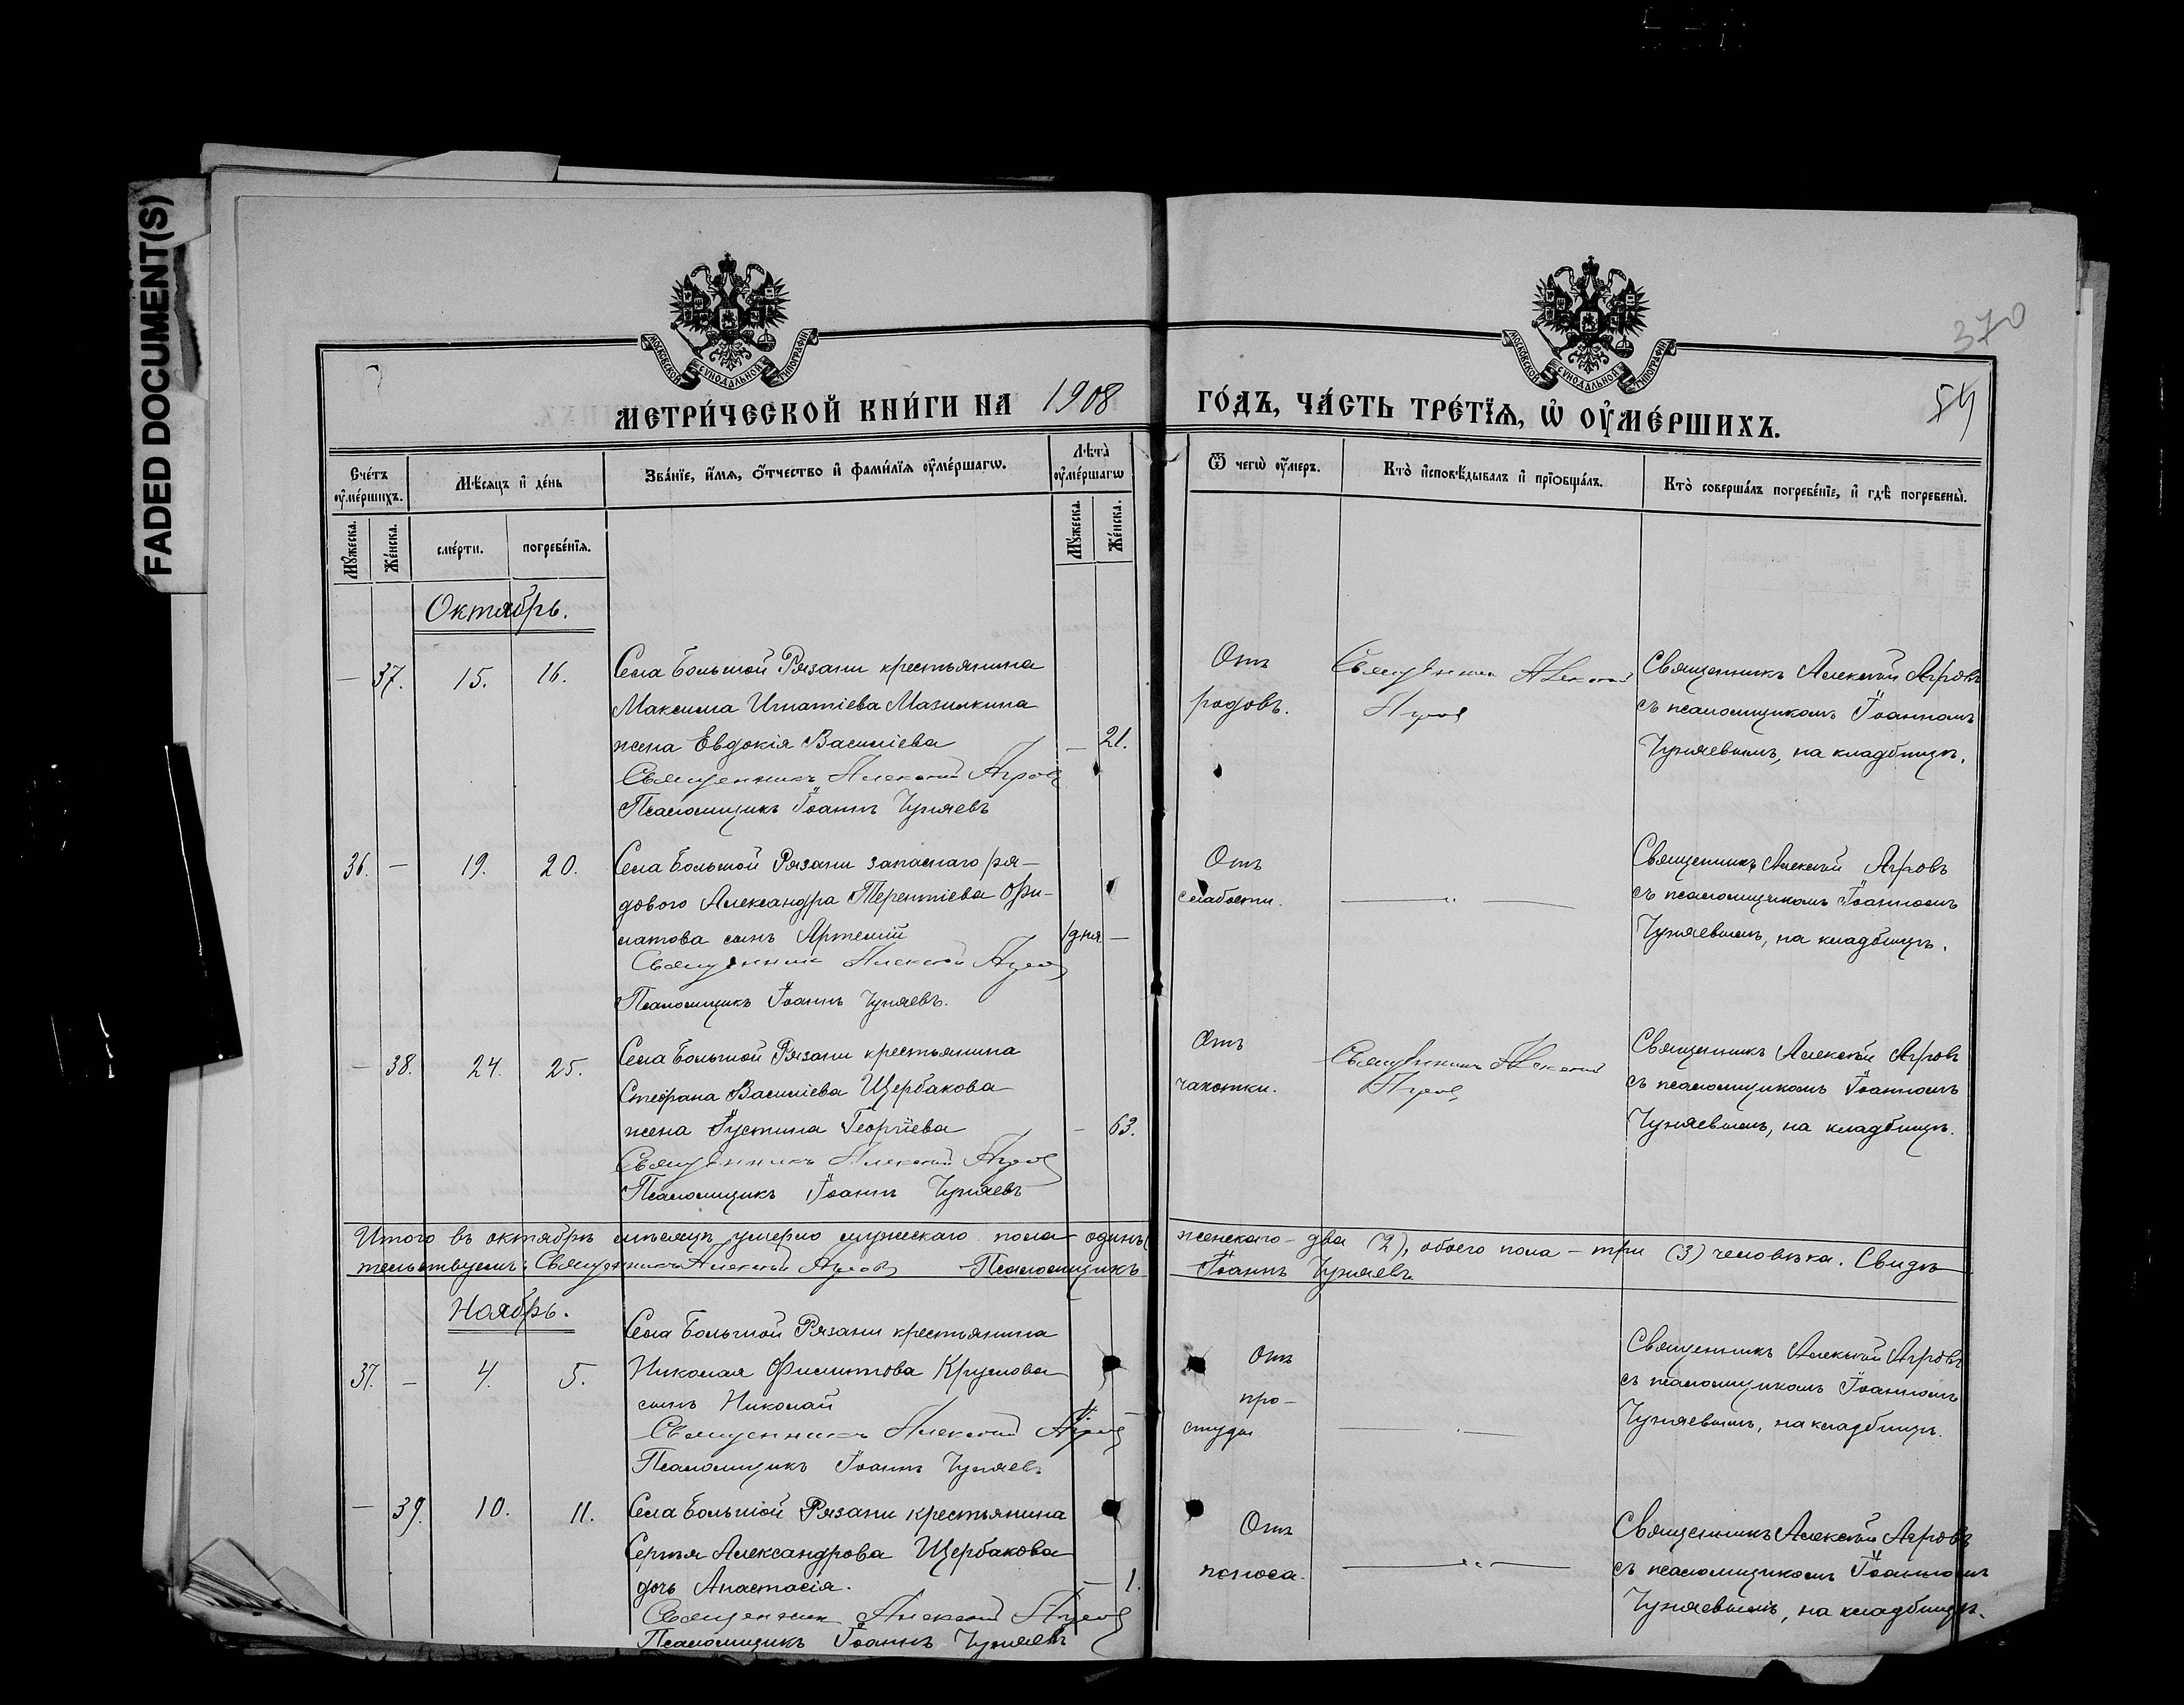 FADED DOCUMENT(S)
МОСКОВСКОЙ СѴНОДАЛЬНОЙ ТИПОГРАФІИ
МОСКОВСКОЙ СѴНОДАЛЬНОЙ ТИПОГРАФІИ
370
54
МЕТРИ́ЧЕСКОЙ КНИ́ГИ НА 1908 ГО́ДЪ, ЧА́СТЬ ТРЕ́ТЇѦ, Ѽ ОУ҆МЕ́РШИХЪ.
Сче́тъ оу҆ме́ршихъ.
Мѣ́сяцъ и҆ де́нь
Зва́нїе, и҆́мѧ, ѻ҆́тчество и҆ фами́лїѧ оу҆ме́ршагѡ.
Лѣ́та оу҆ме́ршагѡ
Ѿ чегѡ̀ оу҆́меръ.
Кто̀ и҆сповѣ́дывалъ и҆ прїѻбща́лъ.
Кто̀ соверша́лъ погребе́нїе, и҆ гдѣ̀ погребены̀.
Мꙋ́жеска.
Же́нска.
сме́рти.
погребе́нїѧ.
Мꙋ́жеска.
Же́нска.
Октябрь.
— 37. 15. 16.
Села Большой Рязани крестьянина
Максима Игнатіева Мазилкина
жена Евдокія Василіева — 21.
Священникъ Алексѣй Агровъ
Псаломщикъ Іоаннъ Чуняевъ
Отъ
родовъ.
Священникъ Алексѣй
Агровъ
Священникъ Алексѣй Агровъ
съ псаломщикомъ Іоанномъ
Чуняевымъ, на кладбищѣ.
36. — 19. 20.
Села Большой Рязани запаснаго ря-
дового Александра Терентіева Фи-
латова сынъ Артемій 1 дня —
Священникъ Алексѣй Агровъ
Псаломщикъ Іоаннъ Чуняевъ.
Отъ
слабости.
Священникъ Алексѣй Агровъ
съ псаломщикомъ Іоанномъ
Чуняевымъ, на кладбищѣ.
— 38. 24. 25.
Села Большой Рязани крестьянина
Стефана Василіева Щербакова
жена Іустина Георгіева — 63.
Священникъ Алексѣй Агровъ
Псаломщикъ Іоаннъ Чуняевъ
Отъ
чахотки.
Священникъ Алексѣй
Агровъ
Священникъ Алексѣй Агровъ
съ псаломщикомъ Іоанномъ
Чуняевымъ, на кладбищѣ.
Итого въ октябрѣ мѣсяцѣ умерло мужескаго пола одинъ женскаго — два (2), обоего пола — три (3) человѣка. Свидѣ
тельствуемъ: Священникъ Алексѣй Агровъ Псаломщикъ Іоаннъ Чуняевъ
Ноябрь.
37. — 4. 5.
Села Большой Рязани крестьянина
Николая Филиппова Круглова
сынъ Николай
Священникъ Алексѣй Агровъ
Псаломщикъ Іоаннъ Чуняевъ
Отъ
про-
студы
Священникъ Алексѣй Агровъ
съ псаломщикомъ Іоанномъ
Чуняевымъ, на кладбищѣ.
— 39. 10. 11.
Села Большой Рязани крестьянина
Сергія Александрова Щербакова
дочь Анастасія. — 1.
Священникъ Алексѣй Агровъ
Псаломщикъ Іоаннъ Чуняевъ
Отъ
поноса.
Священникъ Алексѣй Агровъ
съ псаломщикомъ Іоанномъ
Чуняевымъ, на кладбищѣ.